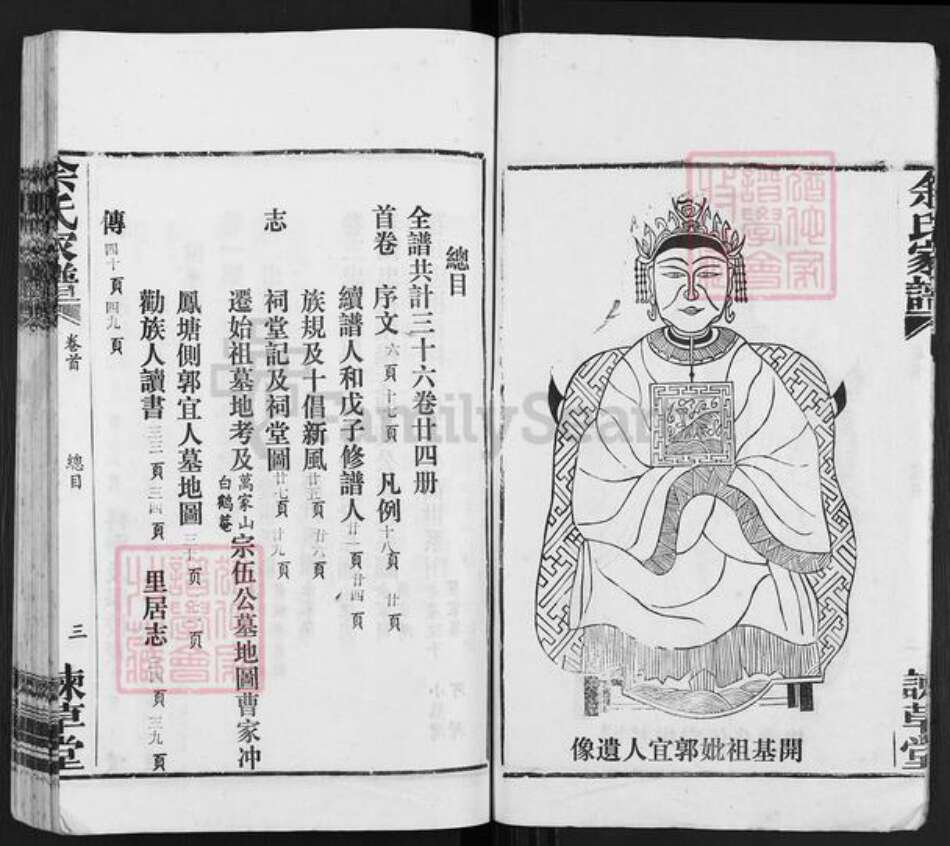 余氏家譜
諫草堂
開基祖妣郭宜人遺像
總目
全譜共計三十六卷廿四册
首卷 序文 六頁 十頁 凡例 十八頁 廿頁
續譜人和戊子修譜人 廿一頁 廿四頁
族規及十倡新風 廿五頁 廿六頁
志 祠堂記及祠堂圖 廿七頁 廿九頁
遷始祖墓地考及萬家山白鶴菴宗伍公墓地圖曹家冲
鳳塘側郭宜人墓地圖 三十頁 頁
勸族人讀書 三三頁 三四頁 里居志 頁 三九頁
傳 四十頁 四九頁
余氏家譜
卷首
總目
三
諫草堂
FamilySearch